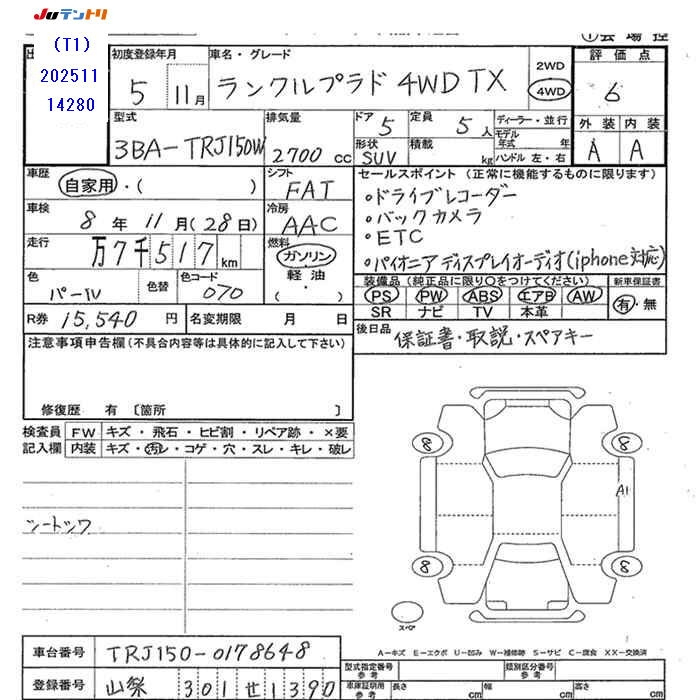 JUテントリ
(T1)
202511
14280
初度登録年月
5 11月
車名・グレード
ランクルプラド 4WD TX
2WD
4WD
評価点
6
外装 内装
A A
型式
3BA-TRJ150W
排気量
2700 cc
ドア
5
定員
5人
形状
SUV
積載
kg
ディーラー・並行
モデル年式 年
ハンドル 左・右
車歴
自家用・( )
シフト
FAT
車検
8年11月(28日)
冷房
AAC
走行
万7千517km
燃料
ガソリン
軽油・
( )
色
パール
色替
色コード
070
R券 15,540円
名変期限 月 日
セールスポイント (正常に機能するものに限ります)
・ドライブレコーダー
・バックカメラ
・ETC
・パイオニアディスプレイオーディオ(iphone対応)
装備品 (純正品に限り○をつけてください)
PS PW ABS エアB AW
SR ナビ TV 本革
新車保証書
有・無
後日品
保証書・取説・スペアキー
注意事項申告欄(不具合内容等は具体的に記入して下さい)
修復歴 有 〔箇所 〕
検査員記入欄
FW キズ・飛石・ヒビ割・リペア跡・×要
内装 キズ・汚レ・コゲ・穴・スレ・キレ・破レ
シートシワ
8 8
A1
8 8
スペア
A-キズ E-エクボ U-凹み W-補修跡 S-サビ C-腐食 XX-交換済
車台番号 TRJ150-0178648
登録番号 山梨 301 せ 1390
型式指定番号 参考
類別区分番号 参考
車庫証明用 参考
長さ cm 幅 cm 高さ cm